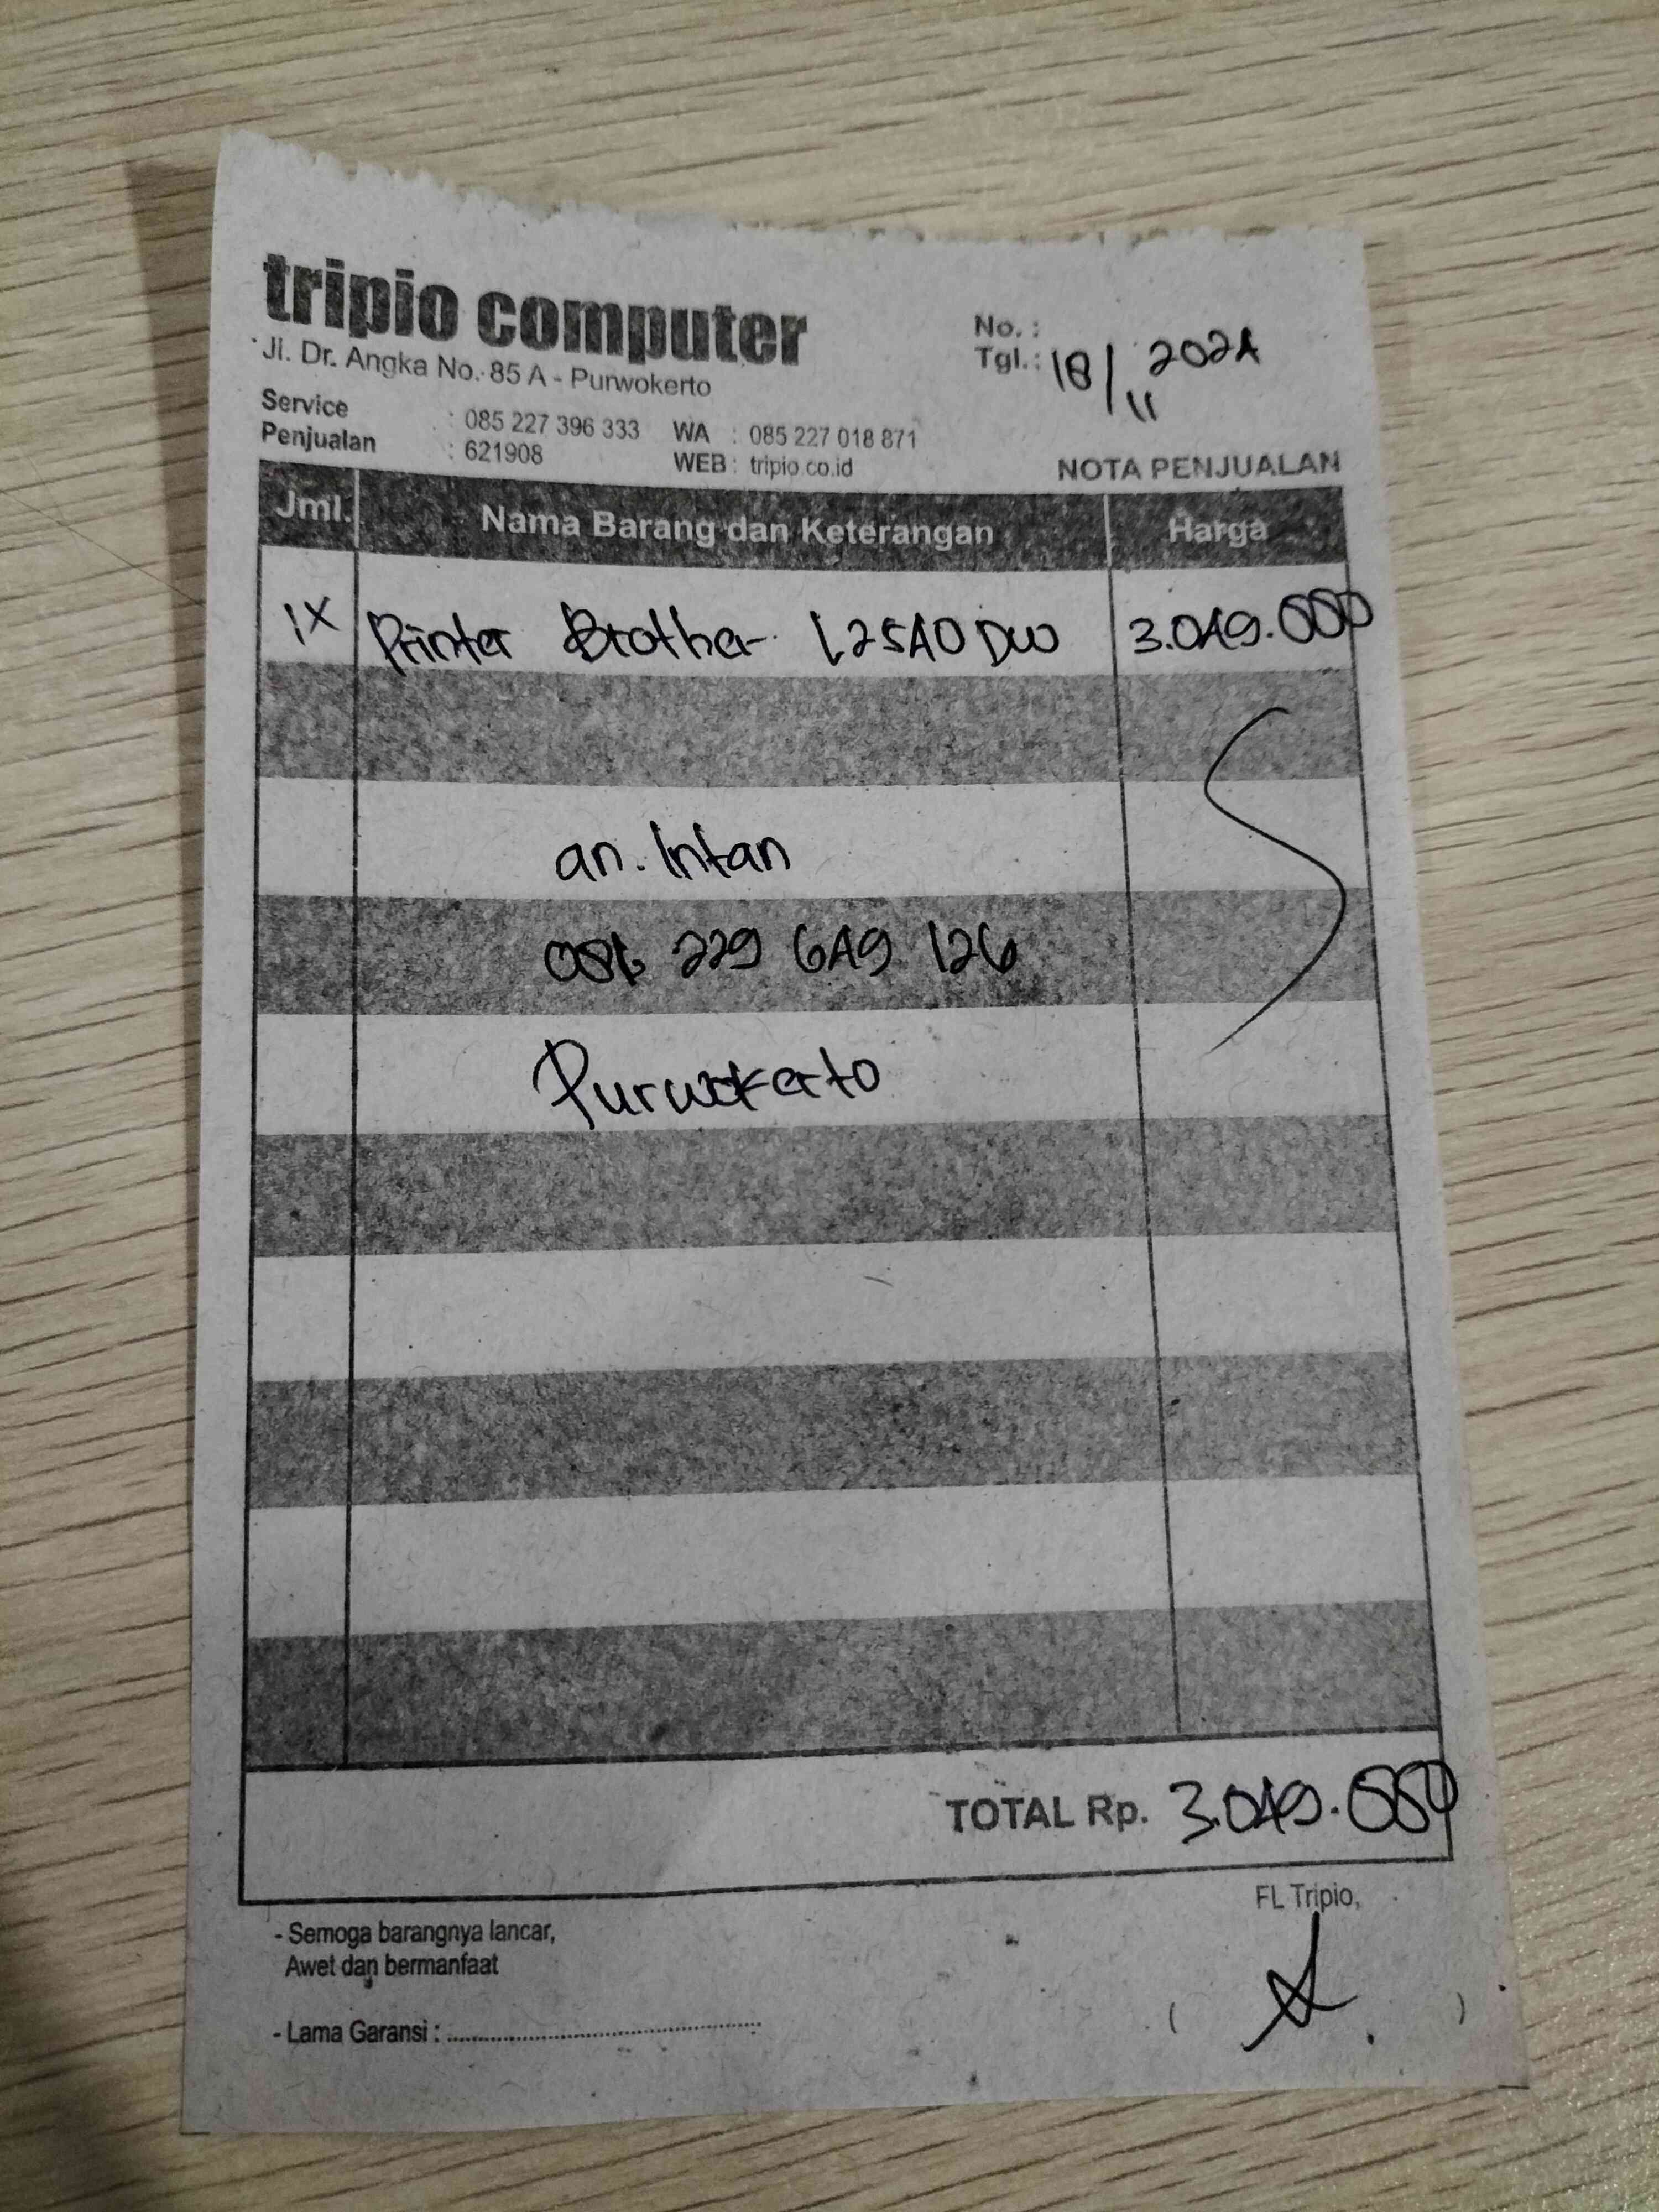 tripio computer
Jl. Dr. Angka No. 85 A - Purwokerto
Service : 085 227 396 333 WA : 085 227 018 871
Penjualan : 621908 WEB : tripio.co.id
No. :
Tgl. : 18/11 2024
NOTA PENJUALAN
Jml. Nama Barang dan Keterangan Harga
1X Printer Brother L2540 DW 3.049.000
an. Intan
229 649 126
Purwokerto
TOTAL Rp. 3.049.000
- Semoga barangnya lancar,
Awet dan bermanfaat
- Lama Garansi : ........................
FL Tripio,
( )